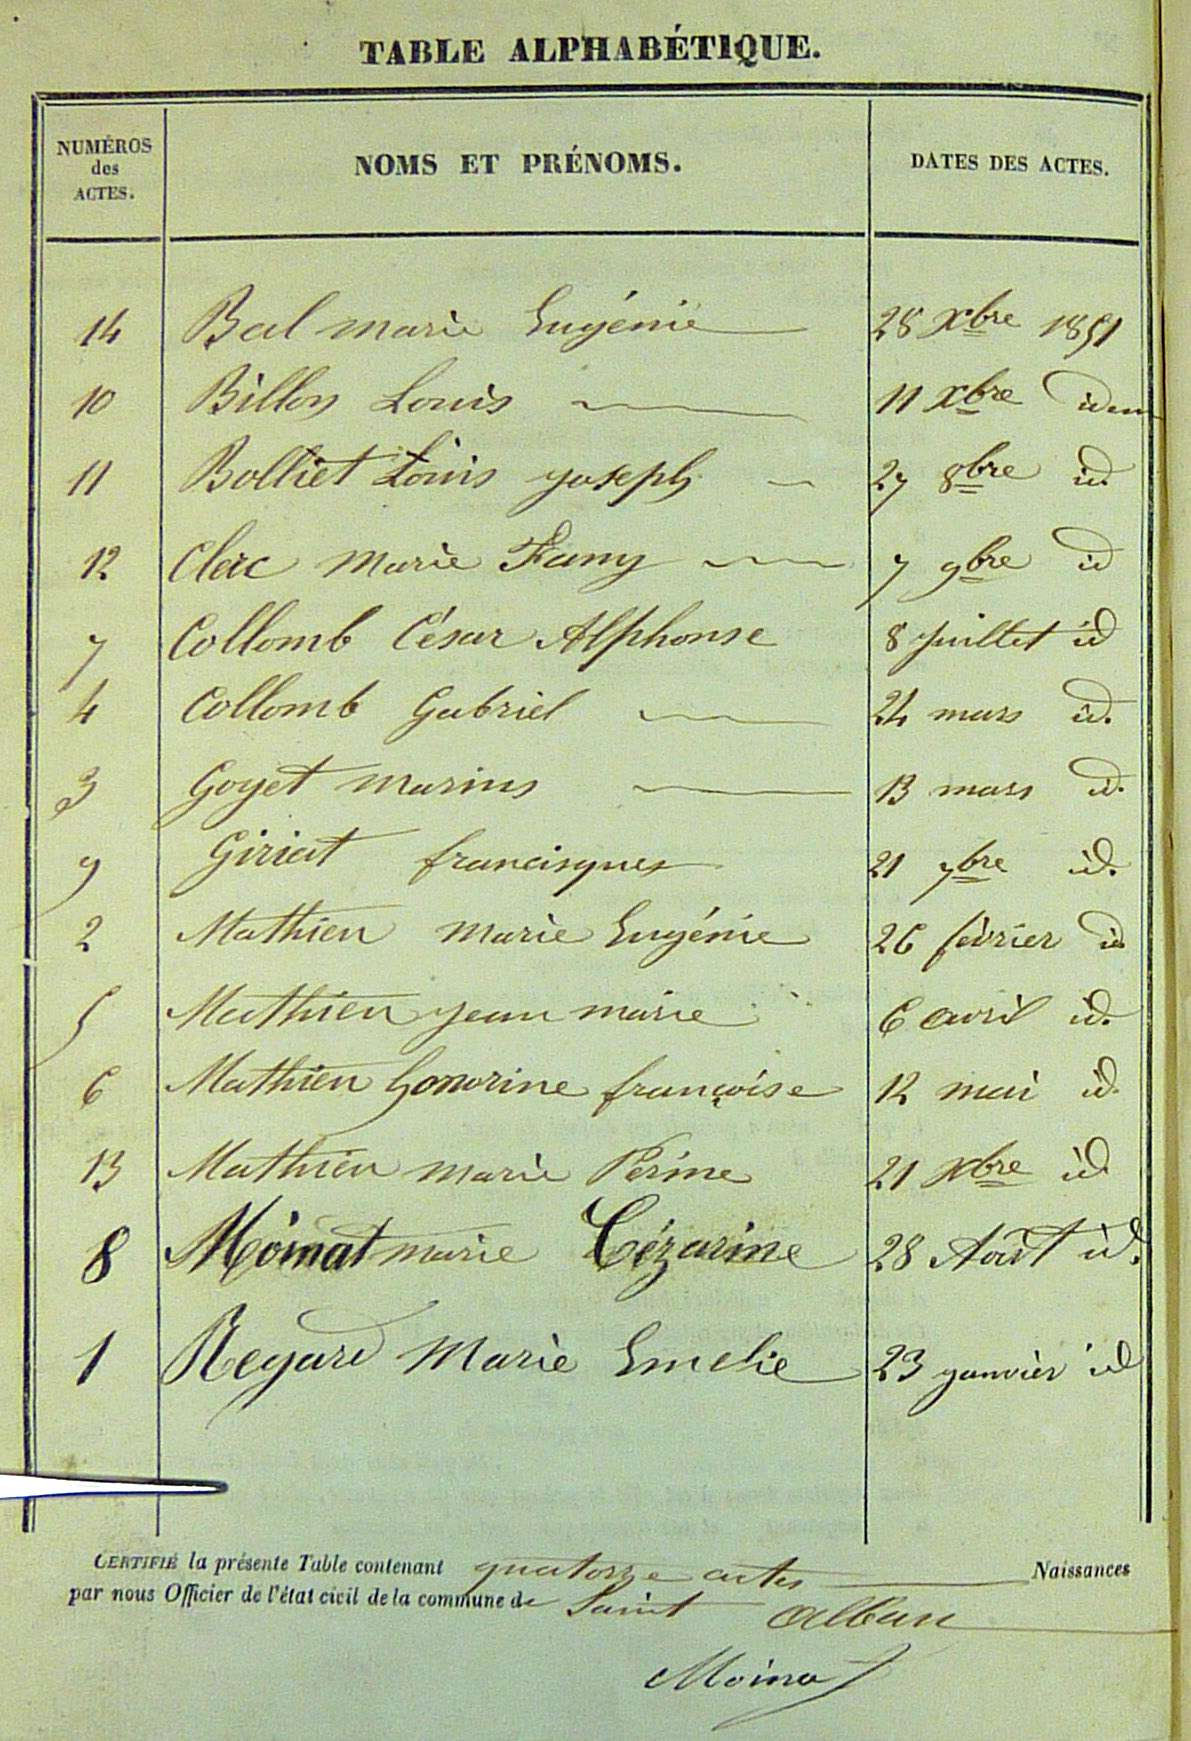 TABLE ALPHABÉTIQUE.
NUMÉROS des ACTES.
NOMS ET PRÉNOMS.
DATES DES ACTES.
14 Bal marie Eugénie 28 Xbre 1851
10 Billon Louis 11 Xbre idem
11 Bolliet Louis joseph 27 8bre id.
12 Clerc Marie Fany 7 9bre id
7 Collomb César Alphonse 8 juillet id
4 Collomb Gabriel 24 mars id.
3 Goyet Marius 13 mars id.
9 Giriat francisques 21 7bre id.
2 Mathieu Marie Eugénie 26 février id
5 Mathieu jean marie 6 avril id.
6 Mathieu honorine françoise 12 mai id.
13 Mathieu Marie Perine 21 Xbre id
8 Moinat marie Cézarine 28 Août id.
1 Regard Marie Emelie 23 janvier id
CERTIFIÉ la présente Table contenant quatorze actes Naissances
par nous Officier de l'état civil de la commune de Saint Alban
Moinat